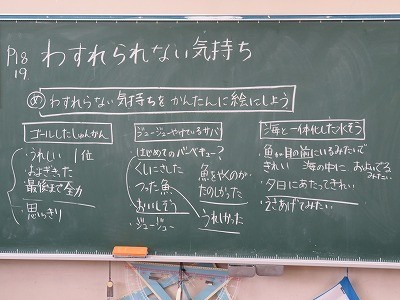 P18
19.
わすれられない気持ち
め わすれらない気持ちをかんたんに絵にしよう
ゴールしたしゅんかん
・うれしい 1位
・およぎきった
最後まで全力
・思いっきり
ジュージューやけているサバ
・はじめてのバーベキュー?
くしにさした
つった魚
・おいしそう
・ジュージュー
魚をやくのが
たのしかった
うれしかった
海と一体化した水そう
・魚が目の前にいるみたいで
きれい 海の中に およいでる
みたい
・夕日にあたってきれい